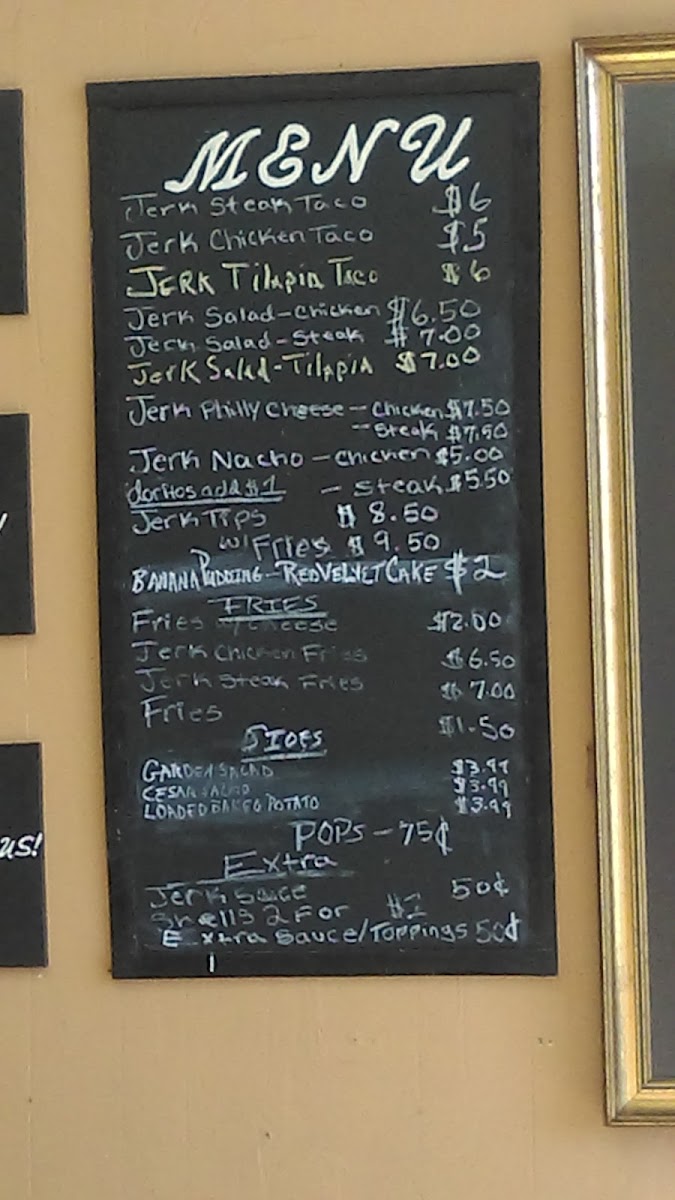 MENU
Jerk Steak Taco $6
Jerk Chicken Taco $5
JERK Tilapia Taco $6
Jerk Salad-Chicken $6.50
Jerk Salad-Steak $7.00
Jerk Salad-Tilapia $7.00
Jerk Philly Cheese - Chicken $7.50
- Steak $7.50
Jerk Nacho - Chicken $5.00
doritos add $1 - Steak $5.50
Jerk Tips $8.50
w/ Fries $9.50
BANANA PUDDING - RED VELVET CAKE $2
FRIES
Fries w/ Cheese $2.00
Jerk Chicken Fries $6.50
Jerk Steak Fries $7.00
Fries $1.50
SIDES
GARDEN SALAD $3.99
CESAR SALAD $3.99
LOADED BAKED POTATO $3.99
POPS - 75¢
Extra
Jerk Sauce 50¢
Shells 2 For $1
Extra Sauce/Toppings 50¢
us!